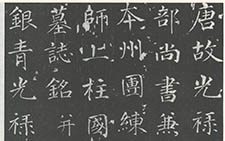 唐故光祿
部尚書兼
本州團練
師上柱國
墓誌銘并
銀青光祿